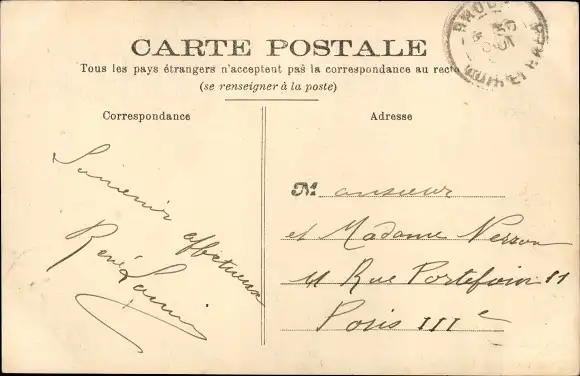 CARTE POSTALE
Tous les pays étrangers n'acceptent pas la correspondance au recto
(se renseigner à la poste)
Correspondance
Adresse
Souvenir
affectueux
René
Monsieur
et Madame
11 Rue Portefoin 11
Paris IIIe